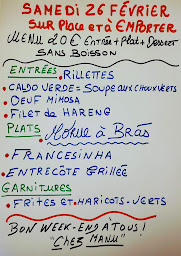 SAMEDI 26 FÉVRIER
SUR PLACE et À EMPORTER
MENU 20€ ENTRÉE + PLAT + DESSERT
SANS BOISSON
ENTRÉES • RILLETTES
• CALDO VERDE = SOUPE AUX CHOUX VERTS
• OEUF MIMOSA
• FILET de HARENG
PLATS • MORUE À BRÁS
• FRANCESINHA
• ENTRECÔTE GRILLÉE
GARNITURES
• FRITES ET HARICOTS-VERTS
BON WEEK-END À TOUS !
"CHEZ MANU"